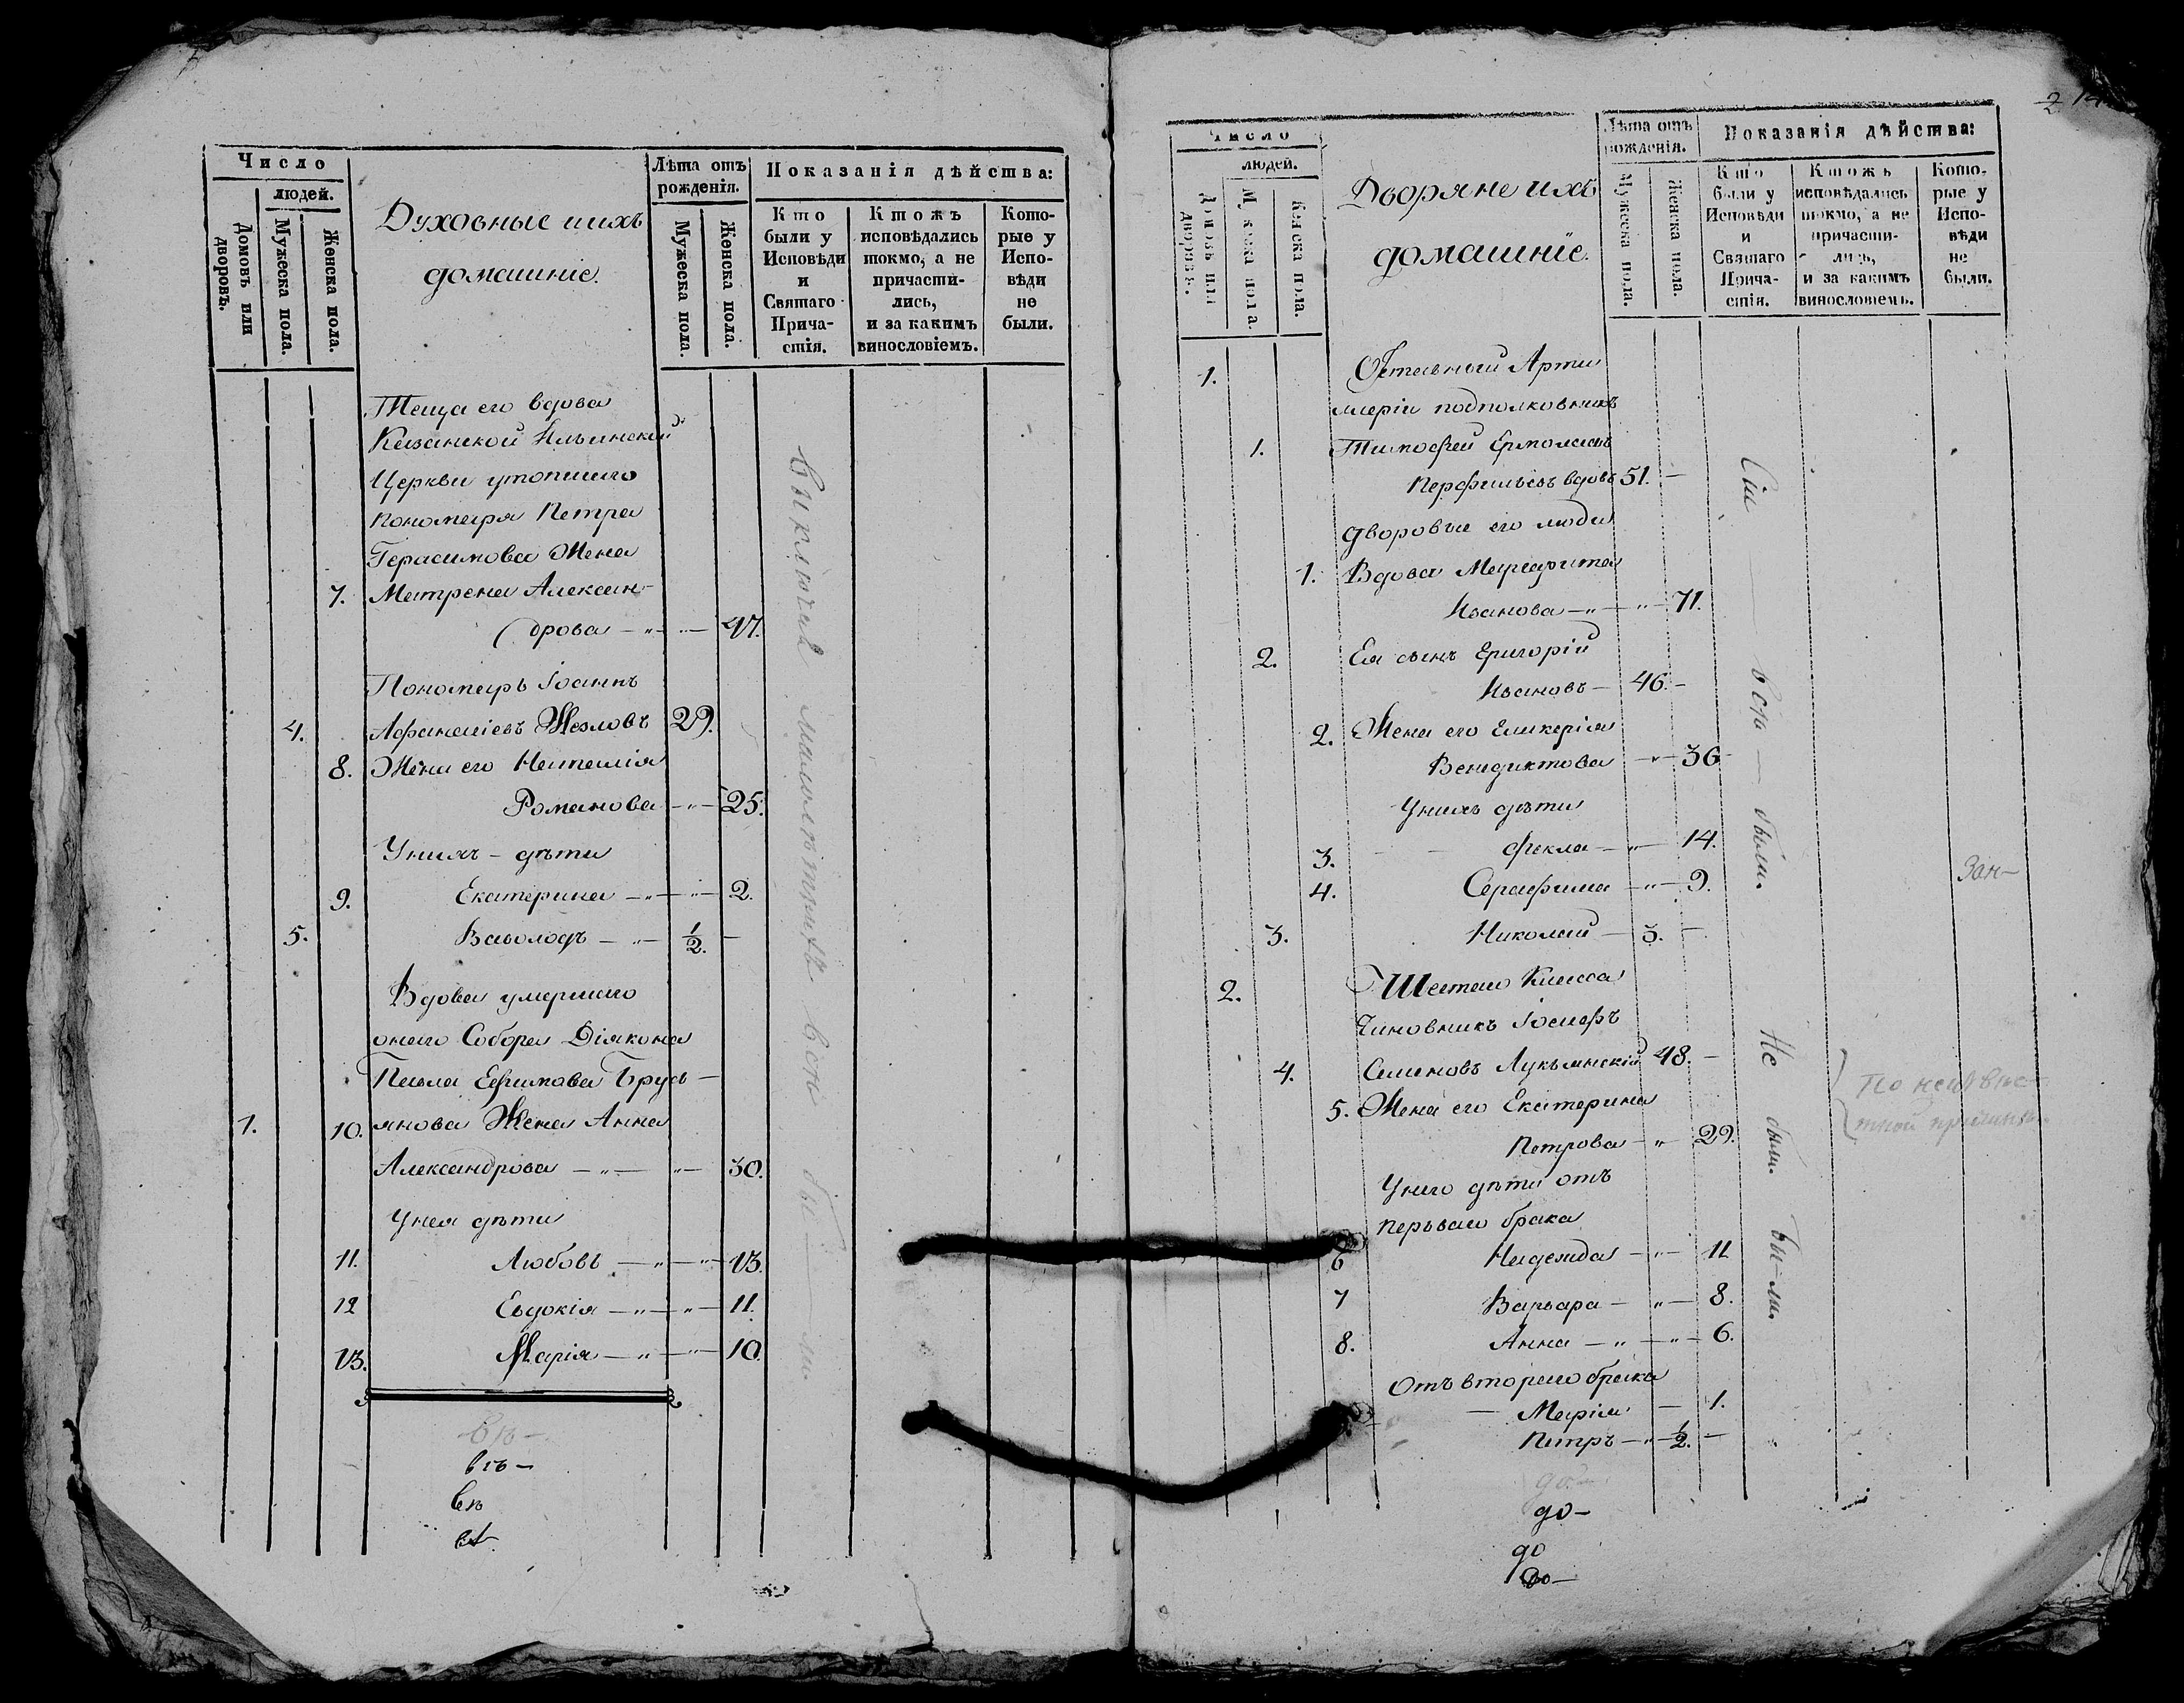 Число
людей.
Домовъ или дворовъ.
Мужеска пола.
Женска пола.
Духовные и ихъ
домашніе.
Лѣта отъ
рожденія.
Мужеска пола.
Женска пола.
Показанія дѣйства:
Кто
были у
Исповѣди
и
Святаго
Прича-
стія.
Ктожъ
исповѣдались
токмо, а не
причасти-
лись,
и за какимъ
винословіемъ.
Кото-
рые у
Испо-
вѣди
не
были.
Теща его вдова
Казанской Ильинской
Церкви утопшаго
пономаря Петра
Герасимова Жена
7. Матрена Алексан-
дрова — 47.
Пономарь Іоаннъ
4. Афанасіевъ Жезловъ 29.
8. Жена его Наталія
Романова — 25.
Унихъ - дѣти
9. Екатерина — 2.
5. Всеволодъ — 1/2. —
Вдова умершаго
онаго Собора Діякона
Павла Ефимова Брусь-
1. 10. янова Жена Анна
Александрова — 30.
Унея дѣти
11. Любовь — 13.
12 Евдокія — 11.
13. Марія — 10.
Выключая малолѣтныхъ всѣ бы — ли.
въ —
2
Число
людей.
Домовъ или дворовъ.
Мужеска пола.
Женска пола.
Дворяне и ихъ
домашніе.
Лѣта отъ
рожденія.
Мужеска пола.
Женска пола.
Показанія дѣйства:
Кто
были у
Исповѣди
и
Святаго
Прича-
стія.
Ктожъ
исповѣдались
токмо, а не
причасти-
лись,
и за какимъ
винословіемъ.
Кото-
рые у
Испо-
вѣди
не
были.
1. Отставной Арти
ллеріи подполковникъ
1. Тимофей Ермолаевъ
Перфильевъ вдовъ 51. —
дворовые его люди
1. Вдова Маргарита
Иванова — 71.
2. Ея сынъ Григорій
Ивановъ — 46. —
2. Жена его Гликерія
Венедиктова — 36
Унихъ дѣти
3. Фекла — 14.
4. Серафима — 9.
3. Николай — 3. —
2. Шестаго Класса
Чиновникъ Іосифъ
4. Семеновъ Лукъянскій 48. —
5. Жена его Екатерина
Петрова — 29.
Унего дѣти отъ
перьваго брака
6 Надежда — 11
7 Варвара — 8.
8. Анна — 6.
Отъ втораго брака
— Марія — 1.
Петръ — 1/2. —
Сіи — всѣ — были.
Не были.
Бы-ли.
По неизвѣс-
тной причинѣ.
до-
до
до-